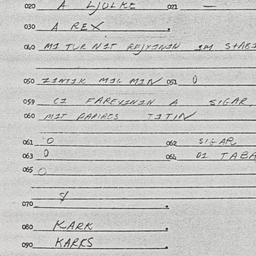 020 A LJULKE 021 —
030 A REX
040 MI TUR NIT REJXININ IM
050 ZINTIK MIG MIN 051 0
059 CI FAREXININ A SIGAR,
060 MIT PAPIRES TITIN
061 0 062 SIGAR
063 0 064 DI TABA
065 0
070
080 KARK
090 KARKS